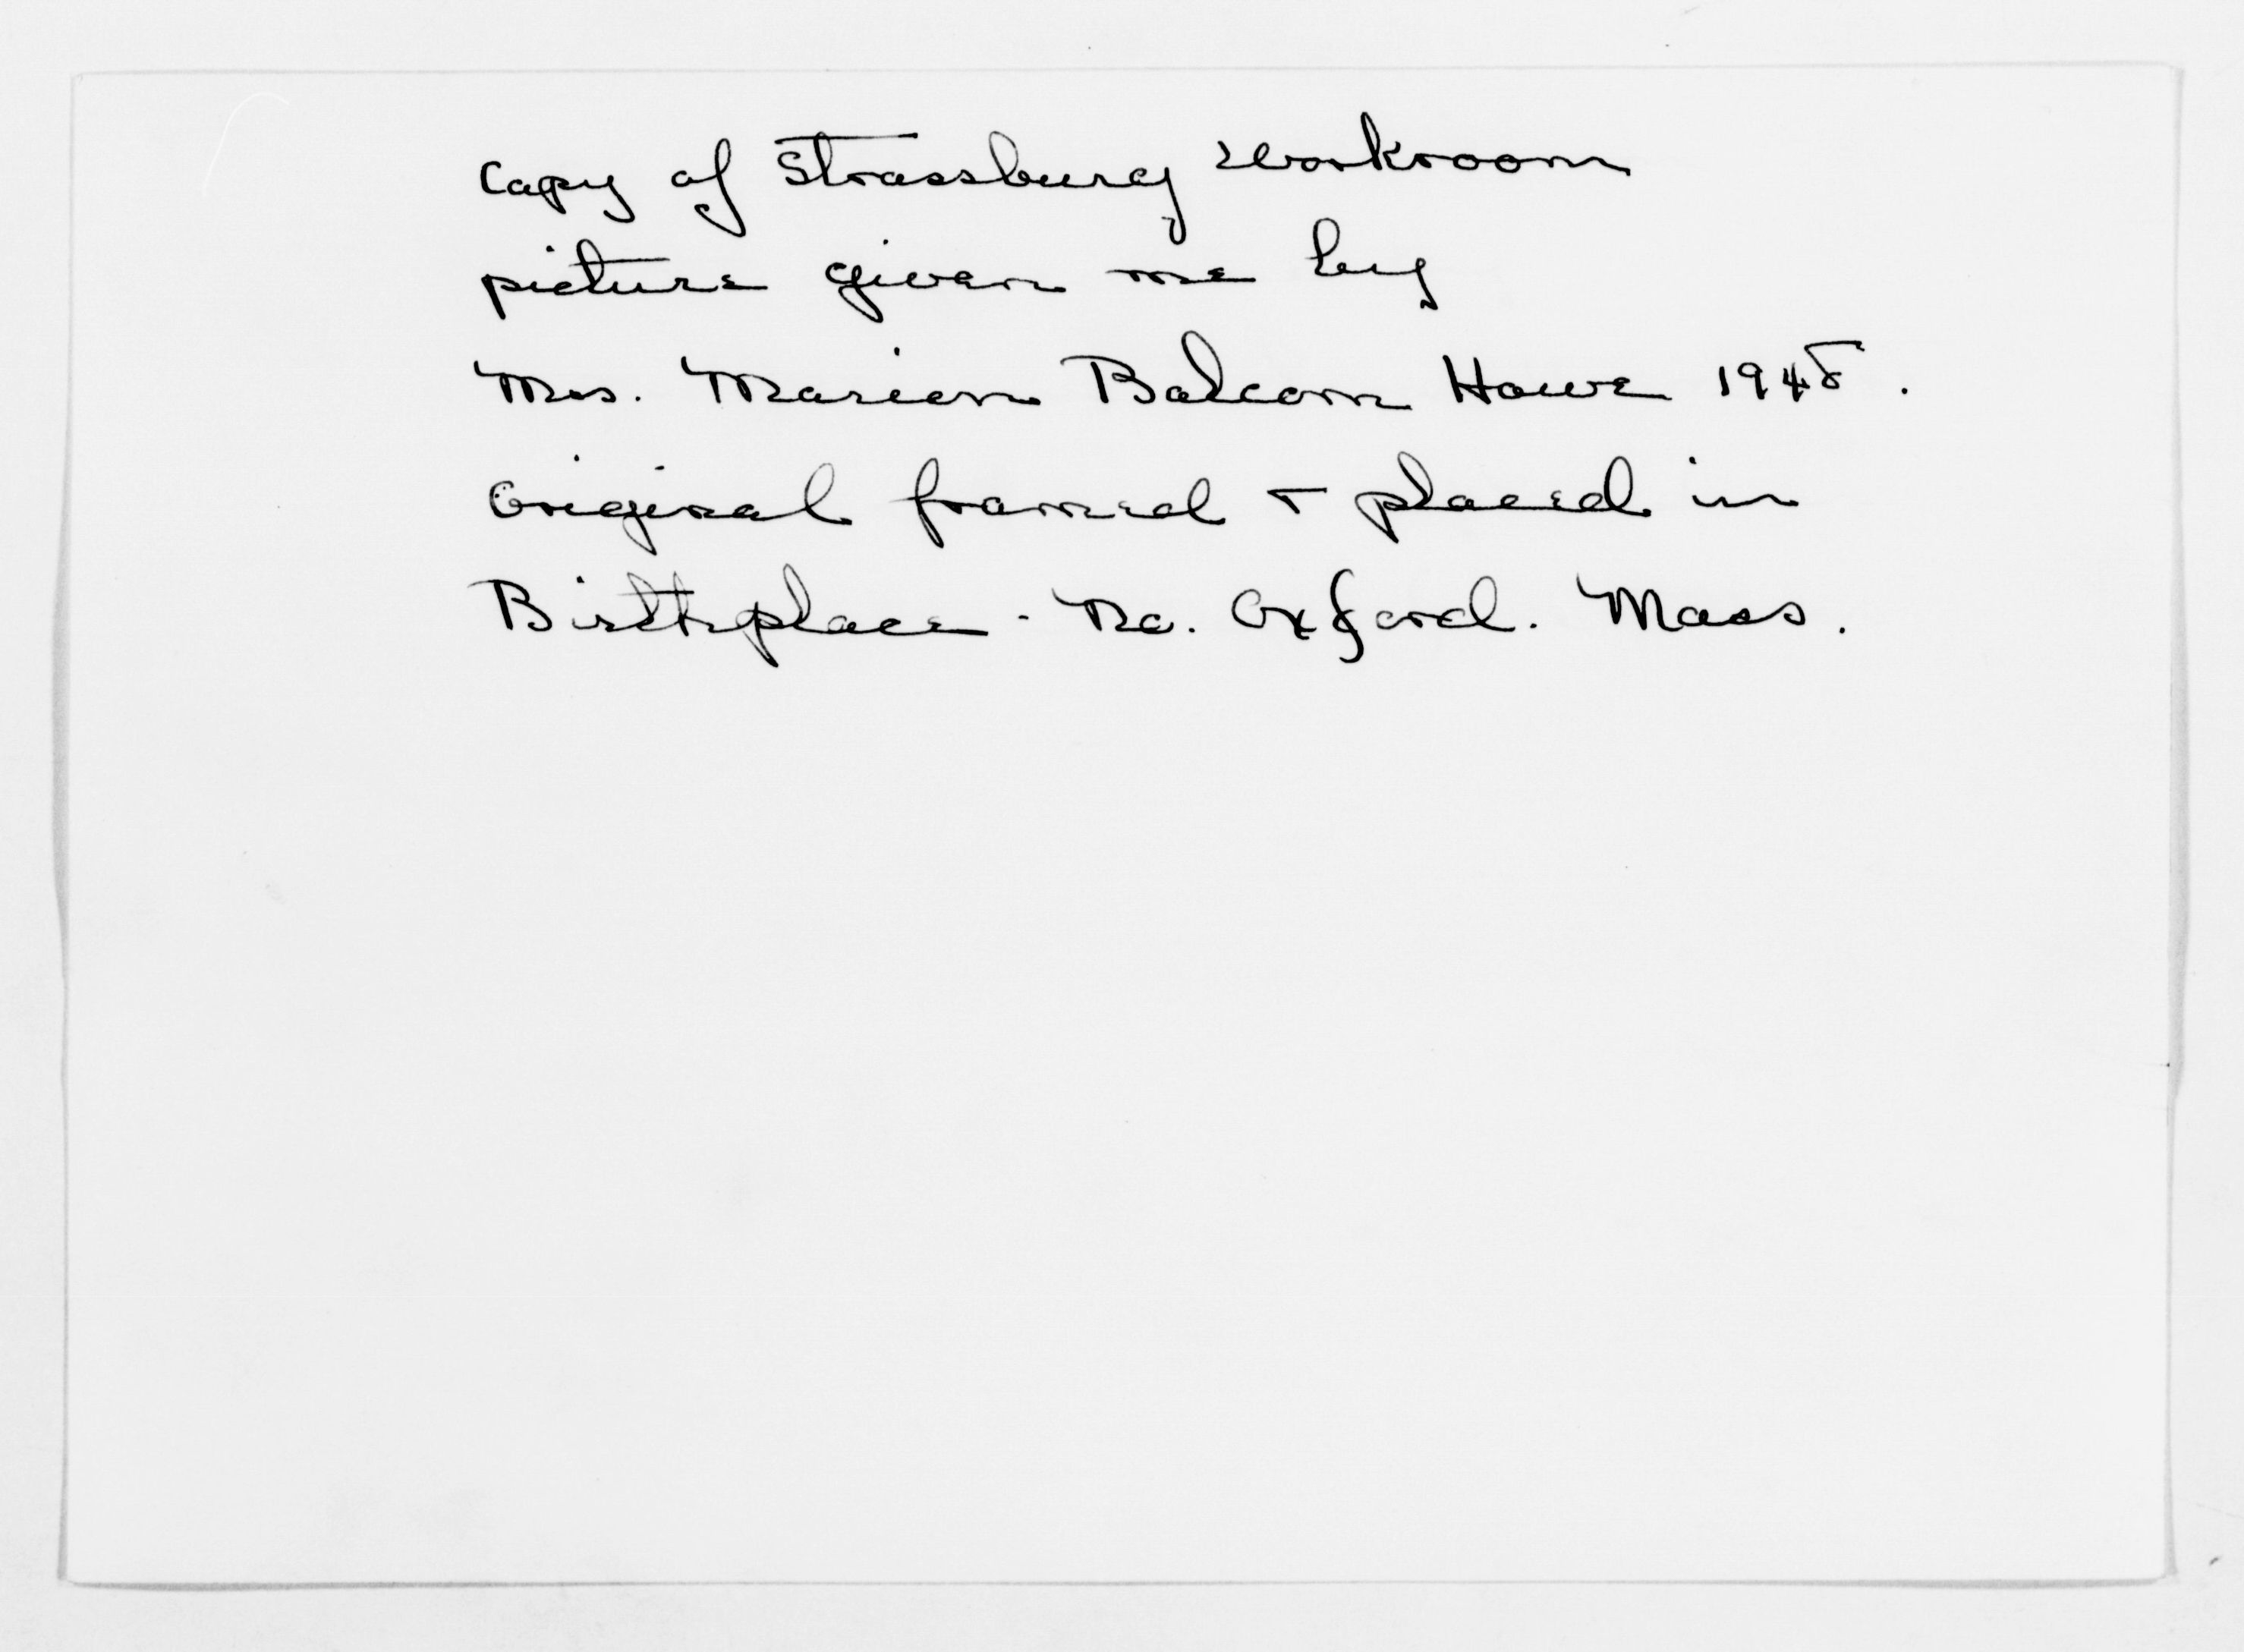 Copy of Strassburg Workroom
picture given me by
Mrs. Marion Balcom Howe 1948.
Original framed & placed in
Birthplace - No. Oxford. Mass.